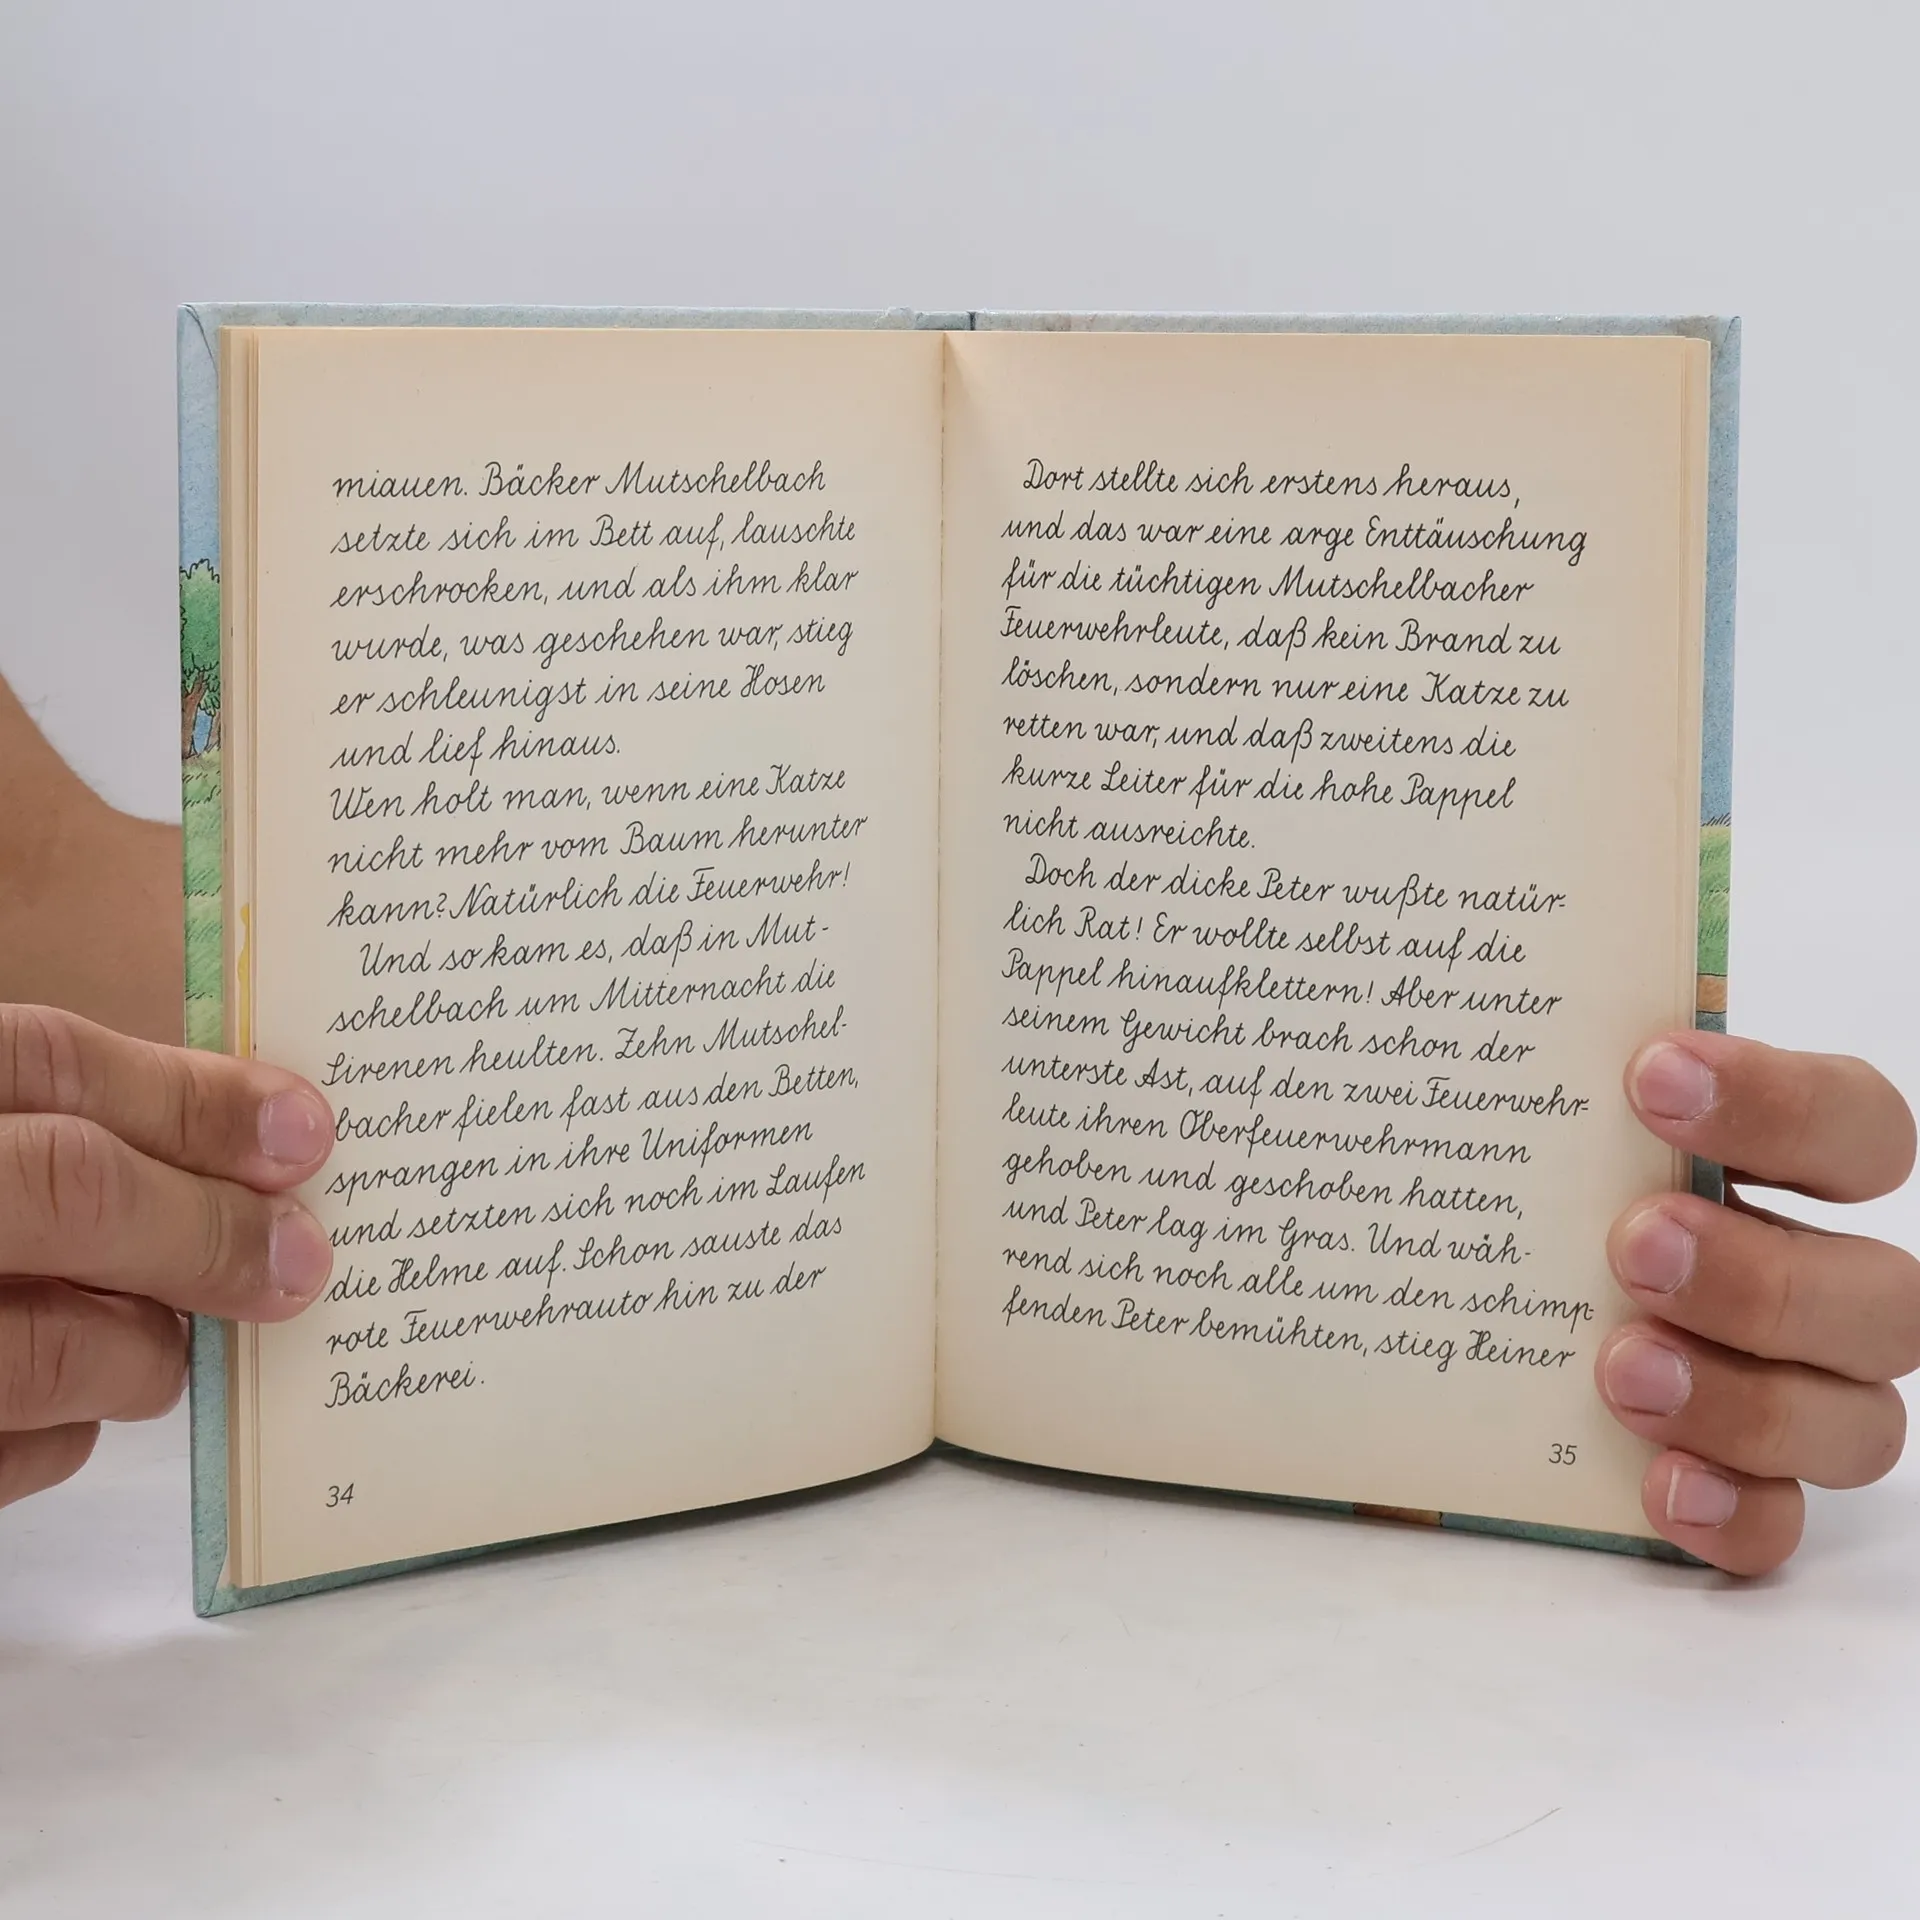 miauen. Bäcker Mutschelbach
setzte sich im Bett auf, lauschte
erschrocken, und als ihm klar
wurde, was geschehen war, stieg
er schleunigst in seine Hosen
und lief hinaus.
Wen holt man, wenn eine Katze
nicht mehr vom Baum herunter
kann? Natürlich die Feuerwehr!
Und so kam es, daß in Mut-
schelbach um Mitternacht die
Sirenen heulten. Zehn Mutschel-
bacher fielen fast aus den Betten,
sprangen in ihre Uniformen
und setzten sich noch im Laufen
die Helme auf. Schon sauste das
rote Feuerwehrauto hin zu der
Bäckerei.
34
Dort stellte sich erstens heraus,
und das war eine arge Enttäuschung
für die tüchtigen Mutschelbacher
Feuerwehrleute, daß kein Brand zu
löschen, sondern nur eine Katze zu
retten war, und daß zweitens die
kurze Leiter für die hohe Pappel
nicht ausreichte.
Doch der dicke Peter wußte natür-
lich Rat! Er wollte selbst auf die
Pappel hinaufklettern! Aber unter
seinem Gewicht brach schon der
unterste Ast, auf den zwei Feuerwehr-
leute ihren Oberfeuerwehrmann
gehoben und geschoben hatten,
und Peter lag im Gras. Und wäh-
rend sich noch alle um den schimp-
fenden Peter bemühten, stieg Heiner
35